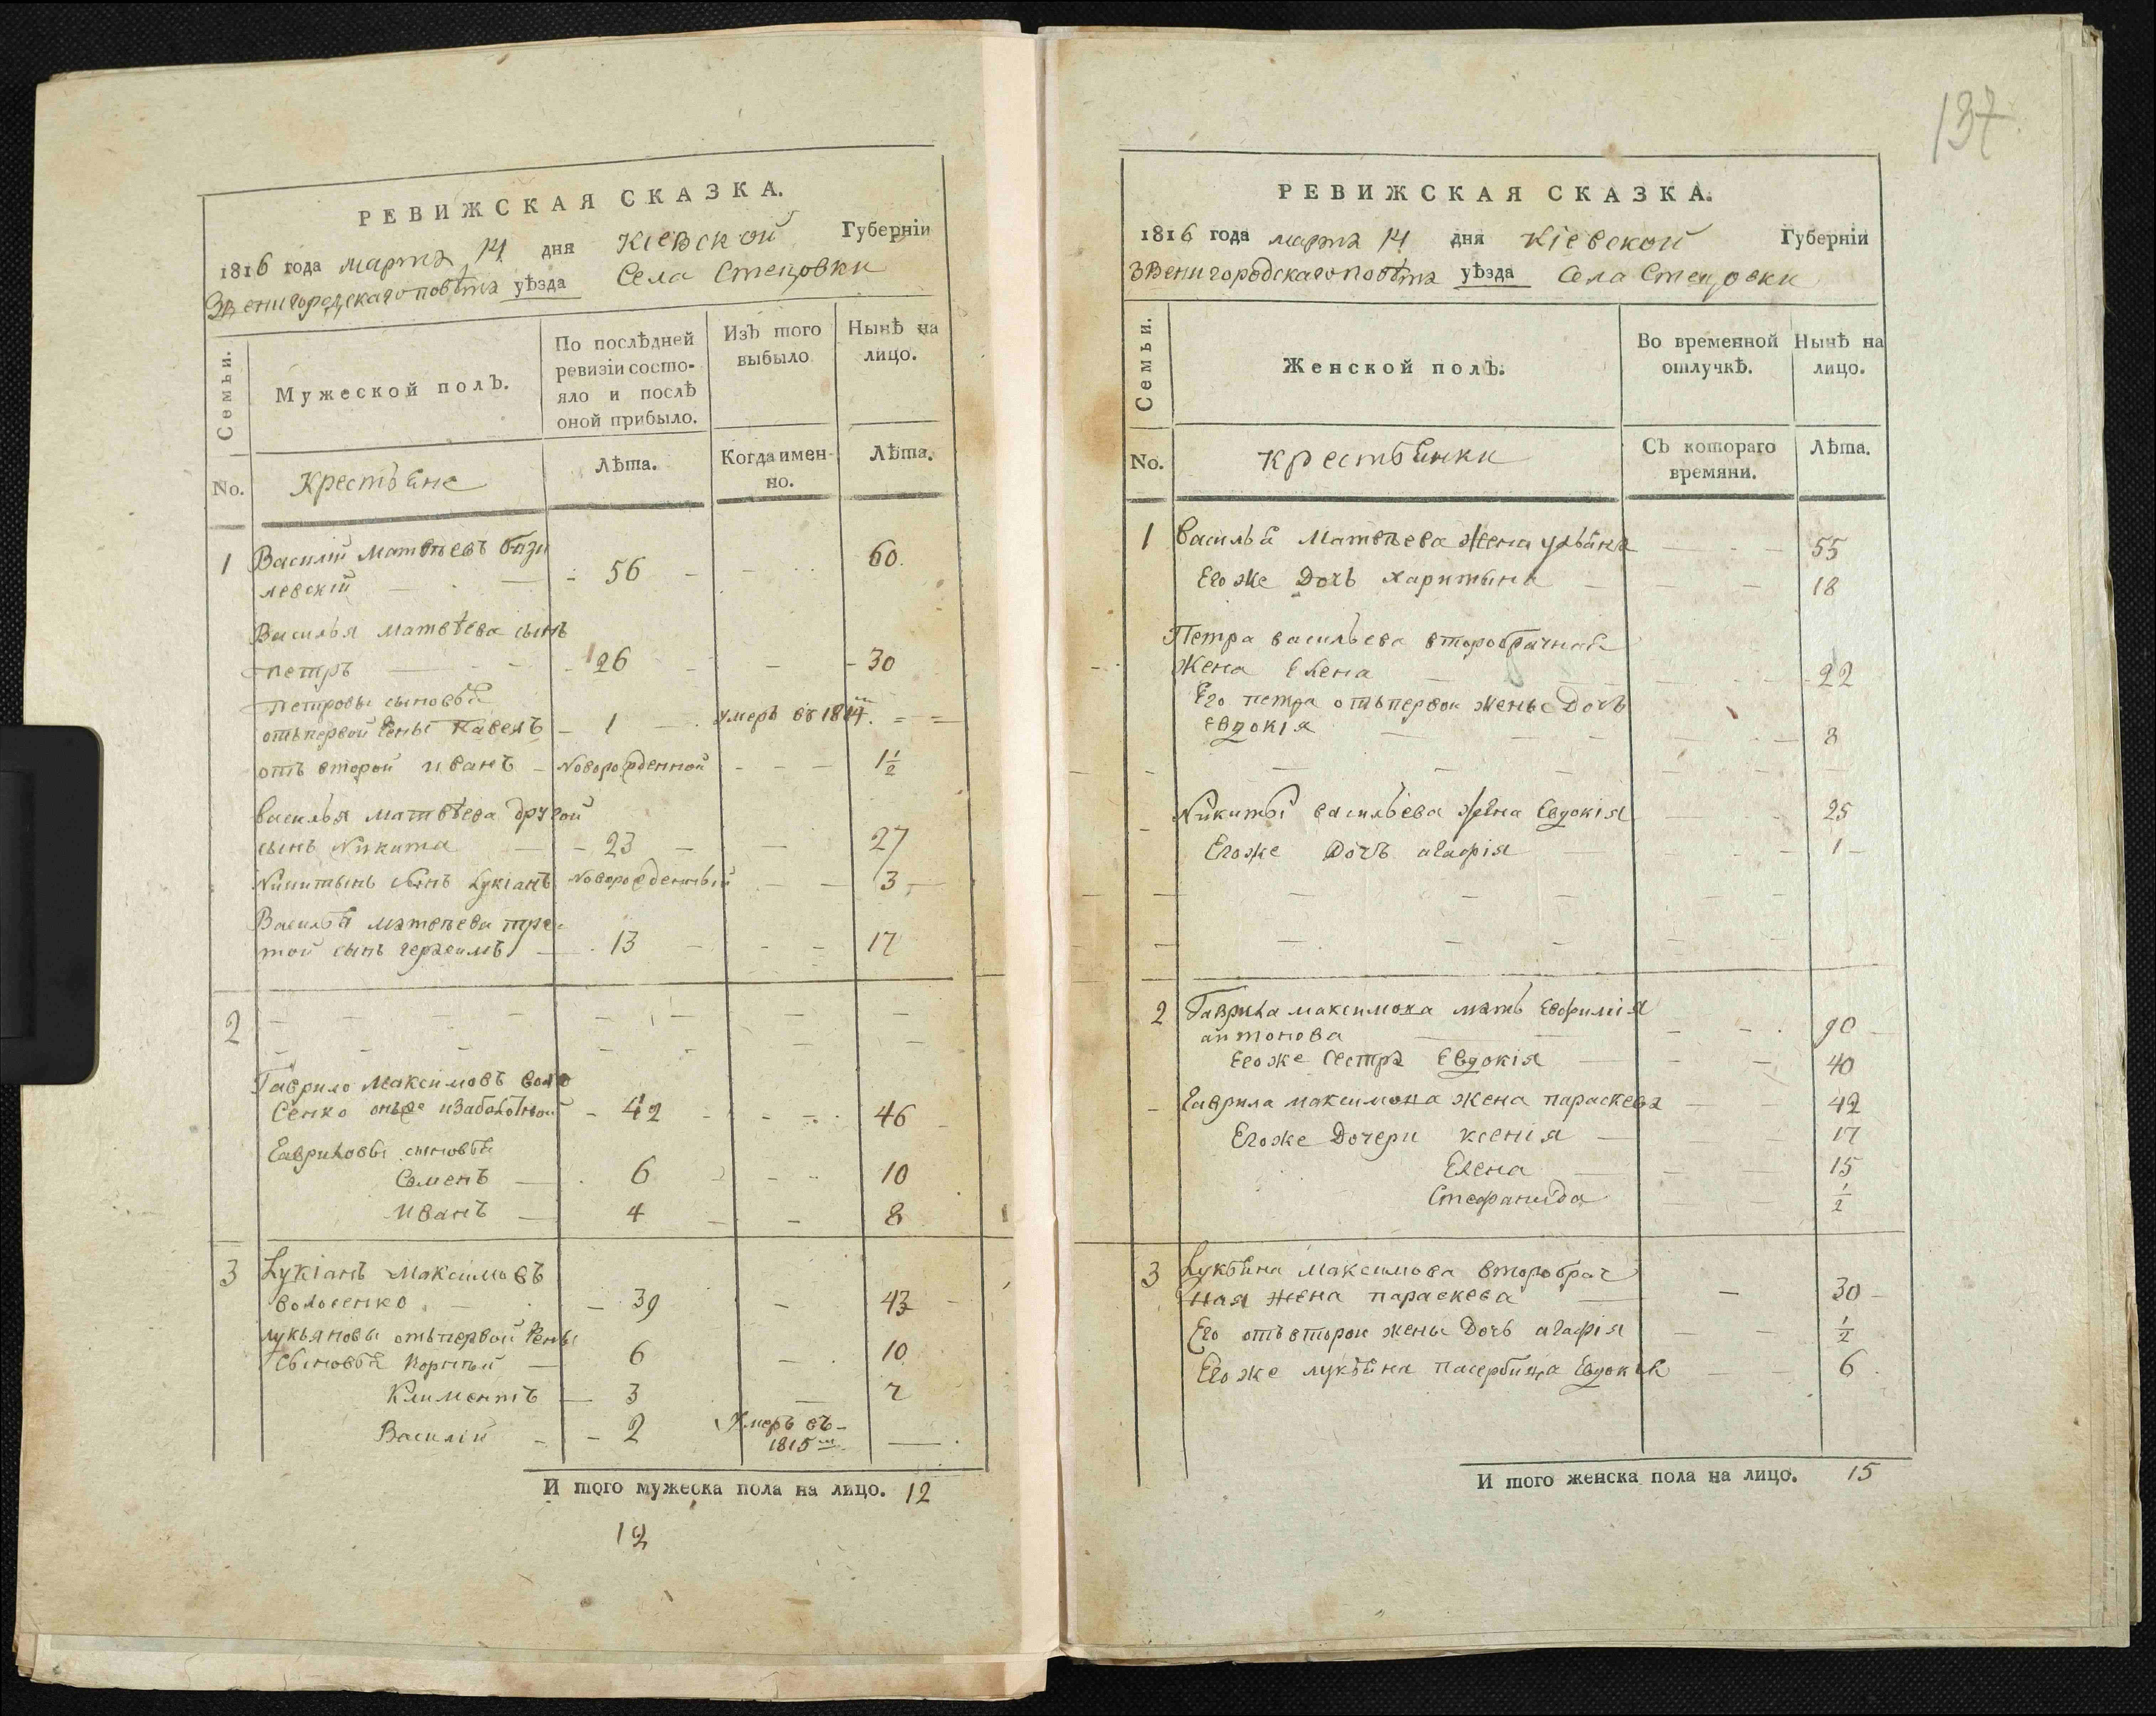 РЕВИЖСКАЯ СКАЗКА.
1816 года марта 14 дня Кіевской Губерніи
Звенигородскаго повѣта уѣзда Села Стецовки
Семьи.
Мужеской полЪ.
По послѣдней ревизіи состо-
яло и послѣ
оной прибыло.
ИзЪ того
выбыло
НынѢ на
лицо.
No.
Крестьяне
ЛѢта.
Когда имен-
но.
ЛѢта.
1 Василій Матвѣевъ
левскій 56 60.
Василья матвѣева сынъ
петръ 26 30
петровы сыновья
отъ первой жены Павелъ 1 умеръ въ 1814.
отъ второй иванъ новорожденной 1 1/2
василья матвѣева другой
сынъ Никита 23 27
Никитынъ сынъ Лукіанъ новорожденный 3
Василья матвѣева тре-
той сынъ герасимъ 13 17
2
Гаврило Максимовъ воло
сенко 42 46
Гавриловы сыновья
Семенъ 6 10
Иванъ 4 8
3 Лукіанъ Максимовъ
волосенко 39 43
лукьяновы отъ первой жены
сыновья Корнѣй 6 10
Климентъ 3 7
Василій 2 Умеръ въ
1815м
И того мужеска пола на лицо. 12
12
137
РЕВИЖСКАЯ СКАЗКА.
1816 года марта 14 дня Кіевской Губерніи
Звенигородскаго повѣта уѣзда Села Стецовки
Семьи.
Женской полЪ.
Во временной
отлучкѢ.
НынѢ на
лицо.
No.
крестьянки
СЪ котораго
времяни.
ЛѢта.
1 Василья Матвѣева жена ульяна 55
Его же Дочь харитына 18
Петра васильева второбрачная
жена Елена 22
Его петра отъ первой жены Дочъ
Евдокія 8
Никиты васильева жена Евдокія 25
Егоже Дочъ агафія 1
2 Гаврила максимова мать Евфимія
антонова 90
Егоже Сестра Евдокія 40
Гаврила максимова жена параскева 42
Егоже Дочери ксенія 17
Елена 15
Стефанида 1/2
3 Лукьяна Максимова второбрач
ная жена параскева 30
Его отъ второй жены Дочь агафія 1/2
Его же лукьяна пасербица Евдокія 6
И того женска пола на лицо. 15